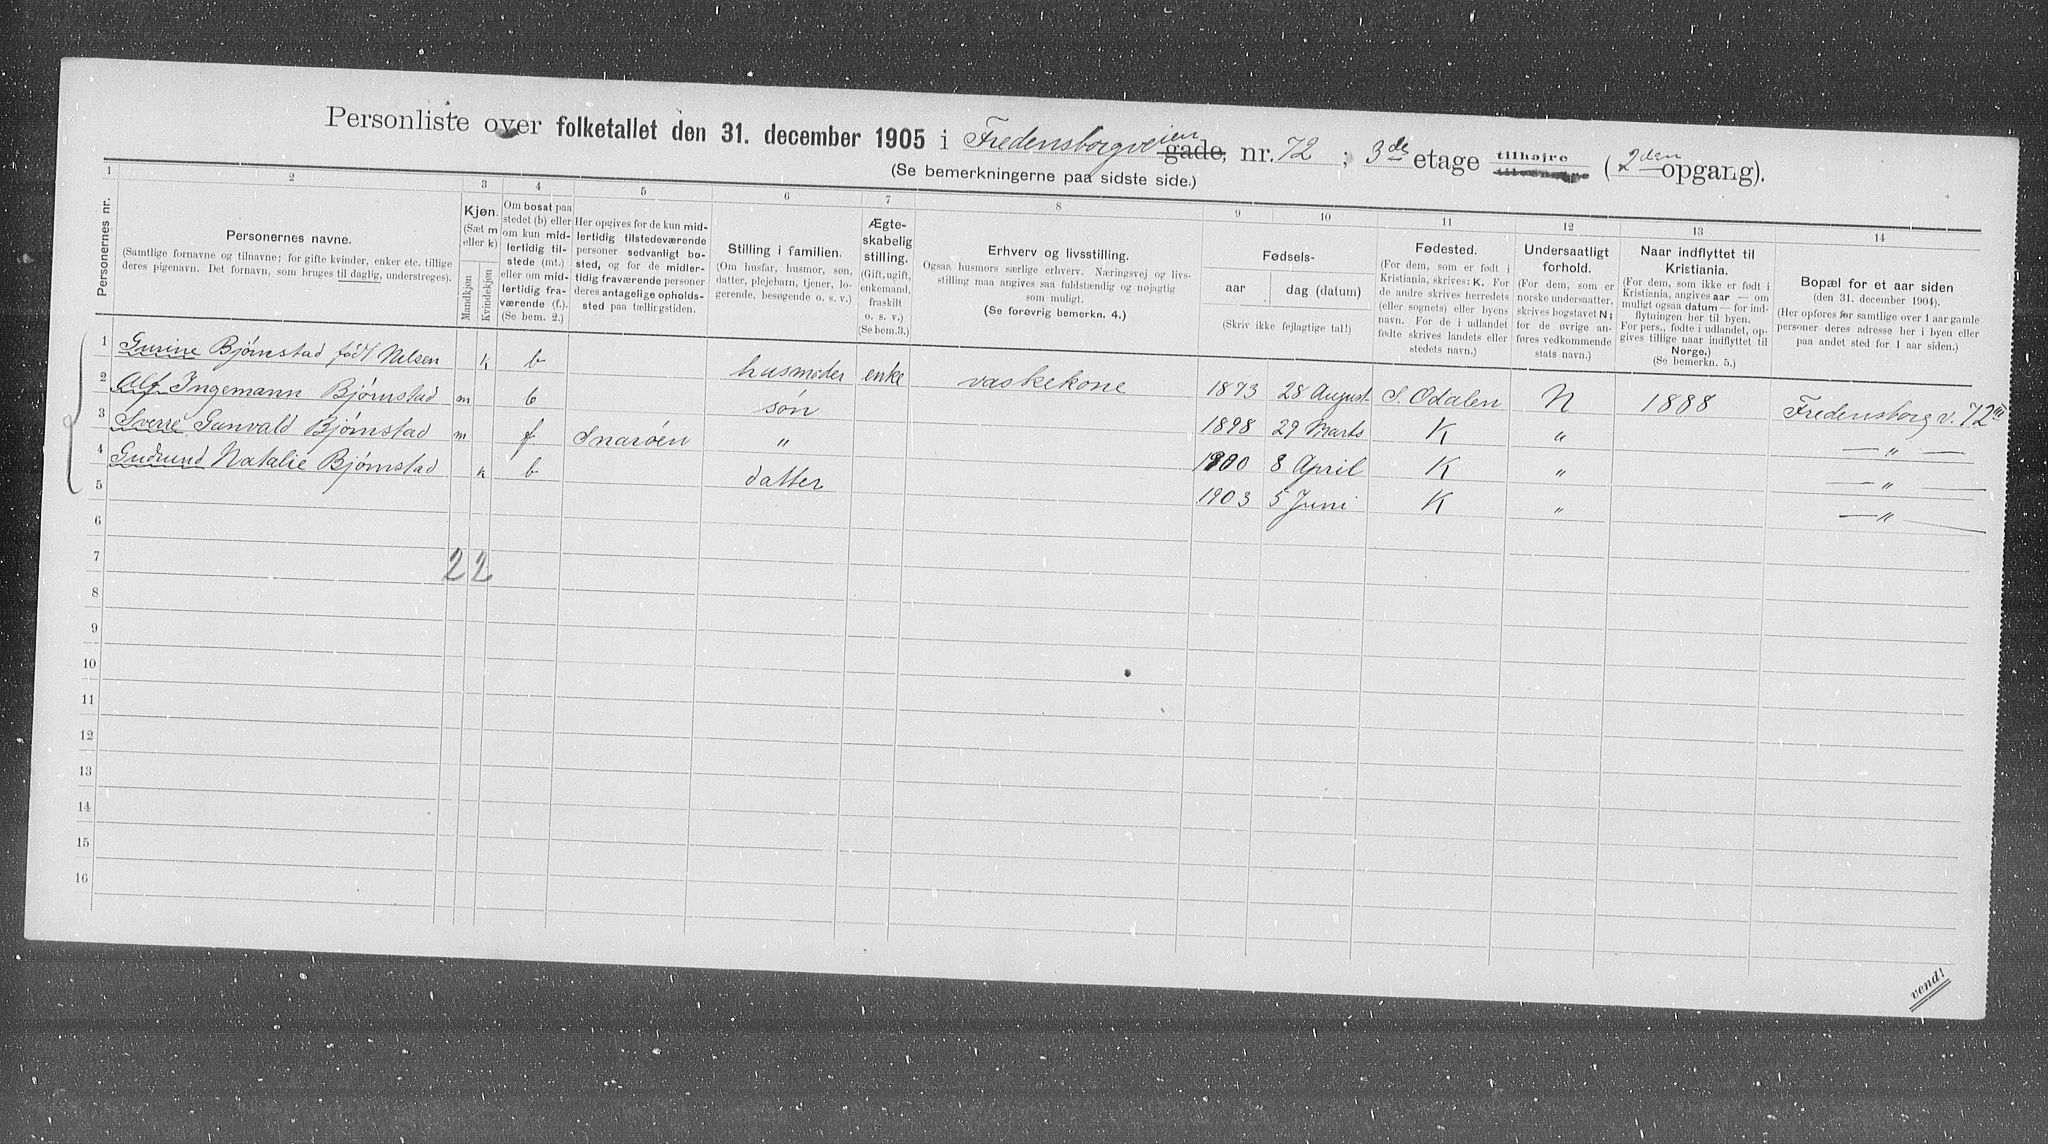 Personliste over folketallet den 31. december 1905 i Fredensborgveien gade, nr. 72 ; 3de etage tilhøjre tilvenstre (2den opgang).
(Se bemerkningerne paa sidste side.)
1 2 3 4 5 6 7 8 9 10 11 12 13 14
Personernes nr.
Personernes navne.
(Samtlige fornavne og tilnavne; for gifte kvinder, enker etc. tillige
deres pigenavn. Det fornavn, som bruges til daglig, understreges).
Kjøn.
(Sæt m
eller k)
Mandkjøn
Kvindekjøn
Om bosat paa
stedet (b) eller
om kun mid-
lertidig til-
stede (mt.)
eller om mid-
lertidig fra-
værende (f.).
(Se bem. 2.)
Her opgives for de kun mid-
lertidig tilstedeværende
personer sedvanligt bo-
sted, og for de midler-
tidig fraværende personer
deres antagelige opholds-
sted paa tællingstiden.
Stilling i familien.
(Om husfar, husmor, søn,
datter, plejebarn, tjener, lo-
gerende, besøgende o. s. v.)
Ægte-
skabelig
stilling.
(Gift, ugift,
enkemand,
fraskilt
o. s. v.)
(Se bem. 3.)
Erhverv og livsstilling.
Ogsaa husmors særlige erhverv. Næringsvej og livs-
stilling maa angives saa fuldstændig og nøjagtig
som muligt.
(Se forøvrig bemerkn. 4.)
Fødsels-
aar
dag (datum)
(Skriv ikke fejlagtige tal!)
Fødested.
(For dem, som er født i
Kristiania, skrives: K. For
de andre skrives herredets
(eller sognets) eller byens
navn. For de i udlandet
fødte skrives landets eller
stedets navn.)
Undersaatligt
forhold.
(For dem, som er
norske undersaatter,
skrives bogstavet N;
for de øvrige an-
føres vedkommende
stats navn.)
Naar indflyttet til
Kristiania.
(For dem, som ikke er født i
Kristiania, angives aar — om
muligt ogsaa datum — for ind-
flytningen her til byen.
For pers., fødte i udlandet, op-
gives tillige naar indflyttet til
Norge.)
(Se bemerkn. 5.)
Bopæl for et aar siden
(den 31. december 1904).
(Her opføres for samtlige over 1 aar gamle
personer deres adresse her i byen eller
paa andet sted for 1 aar siden.)
1 Gurine Bjørnstad født Nelsen k b husmoder enke vaskekone 1873 28 August S. Odalen N 1888 Fredensborg v. 72 III
2 Alf Ingemann Bjørnstad m b søn 1898 29 Marts K " — " —
3 Sverre Gunvald Bjørnstad m f Snarøen " 1900 8 April K " — " —
4 Gudrund Natalie Bjørnstad k b datter 1903 5 Juni K " — " —
5
6
7 2 2
8
9
10
11
12
13
14
15
16
vend!